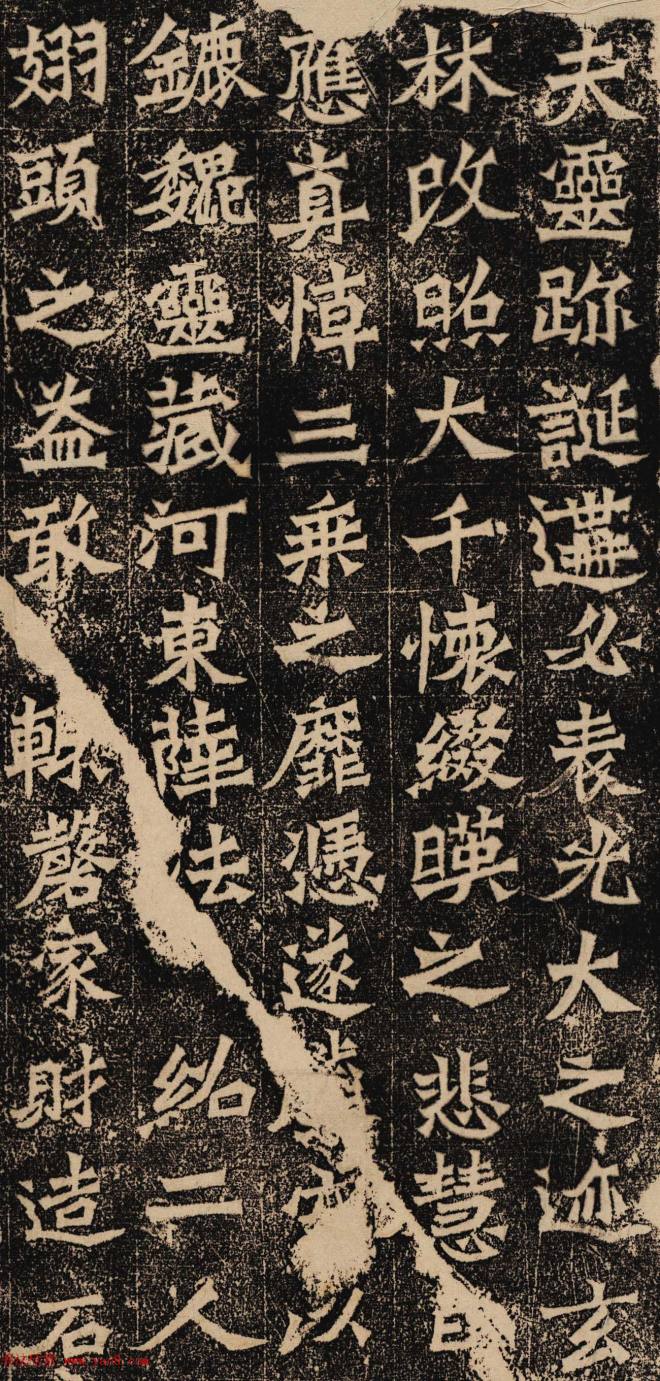 夫靈跡誕遘必表光大之迹玄
林改照大千懷綴暎之悲慧日
應真悼三乘之靡憑遂以
鏕魏靈藏河東薛法紹二人
翅頭之益敢輒罄家財造石